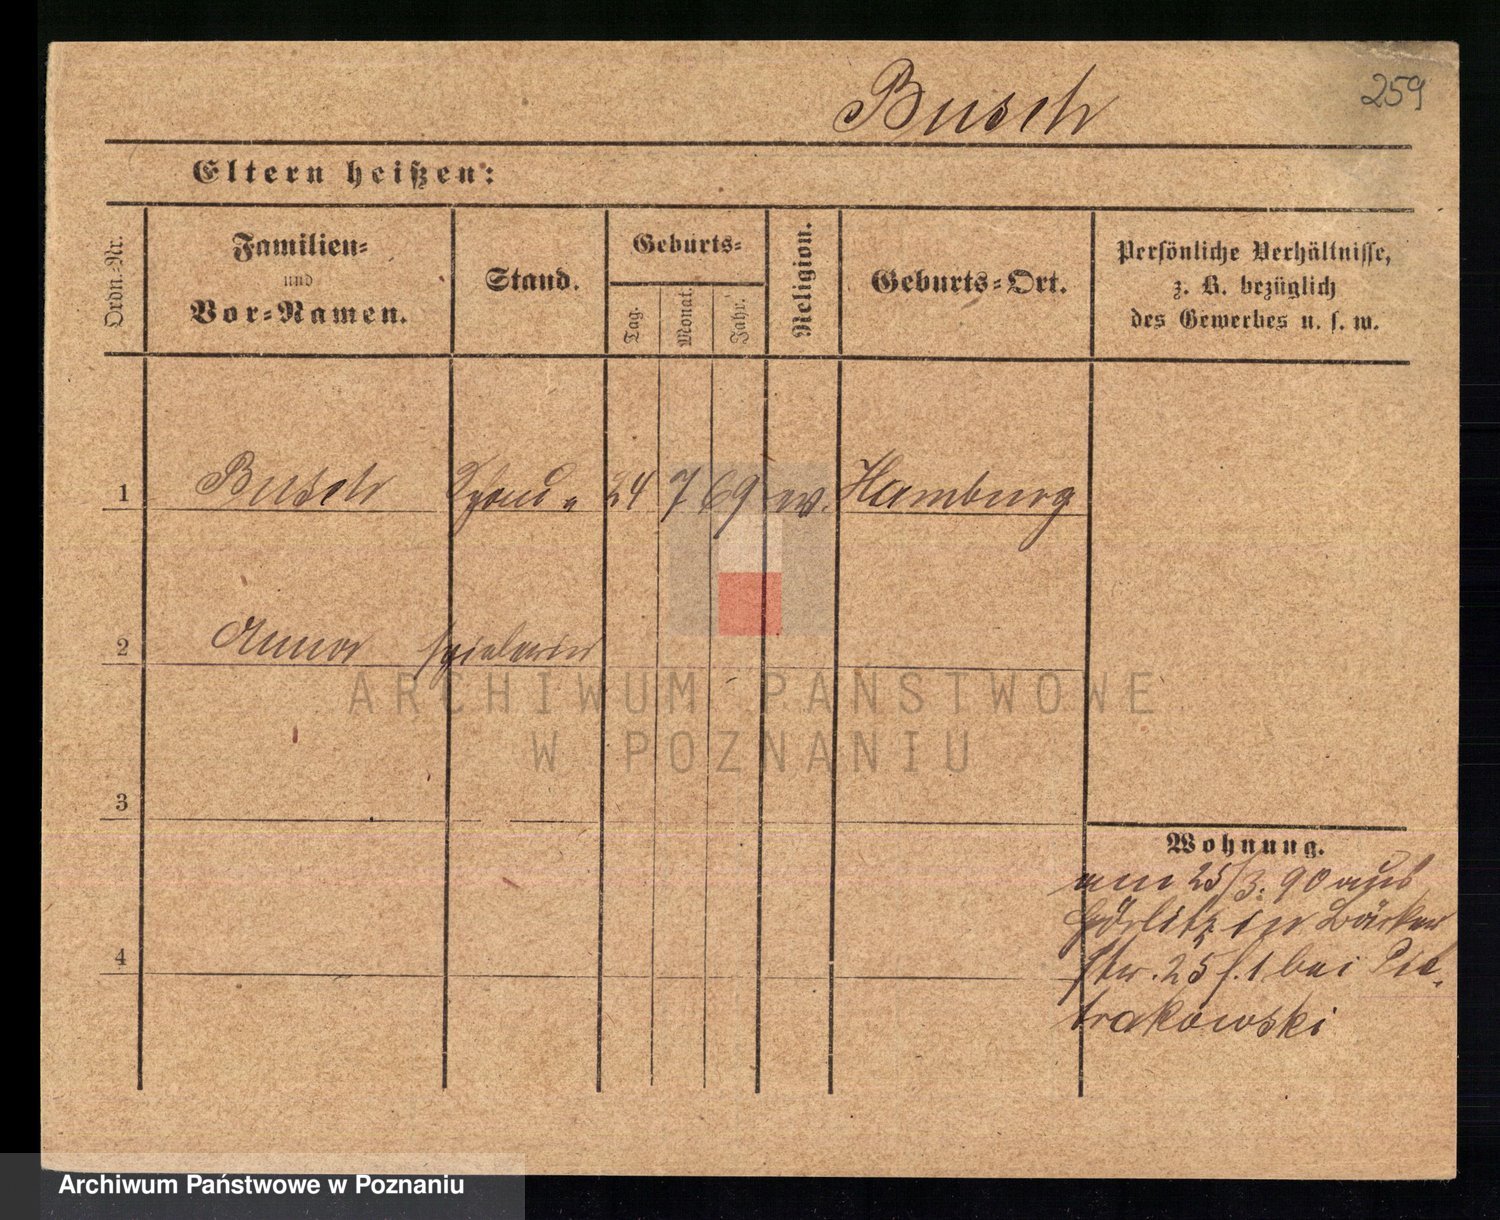 Busch
259
Eltern heißen:
Ordn.-Nr.
Familien-
und
Vor-Namen.
Stand.
Geburts-
Tag.
Monat.
Jahr.
Religion.
Geburts-Ort.
Persönliche Verhältnisse,
z. B. bezüglich
des Gewerbes u. s. w.
1 Busch 24 7 69 ev. Hamburg
2 Anna spielerin
3
4
Wohnung.
am 25/3. 90 aus
Görlitz in Bäcker
str. 25 f. 1 bei Piet-
trakowski
ARCHIWUM PAŃSTWOWE
W POZNANIU
Archiwum Państwowe w Poznaniu